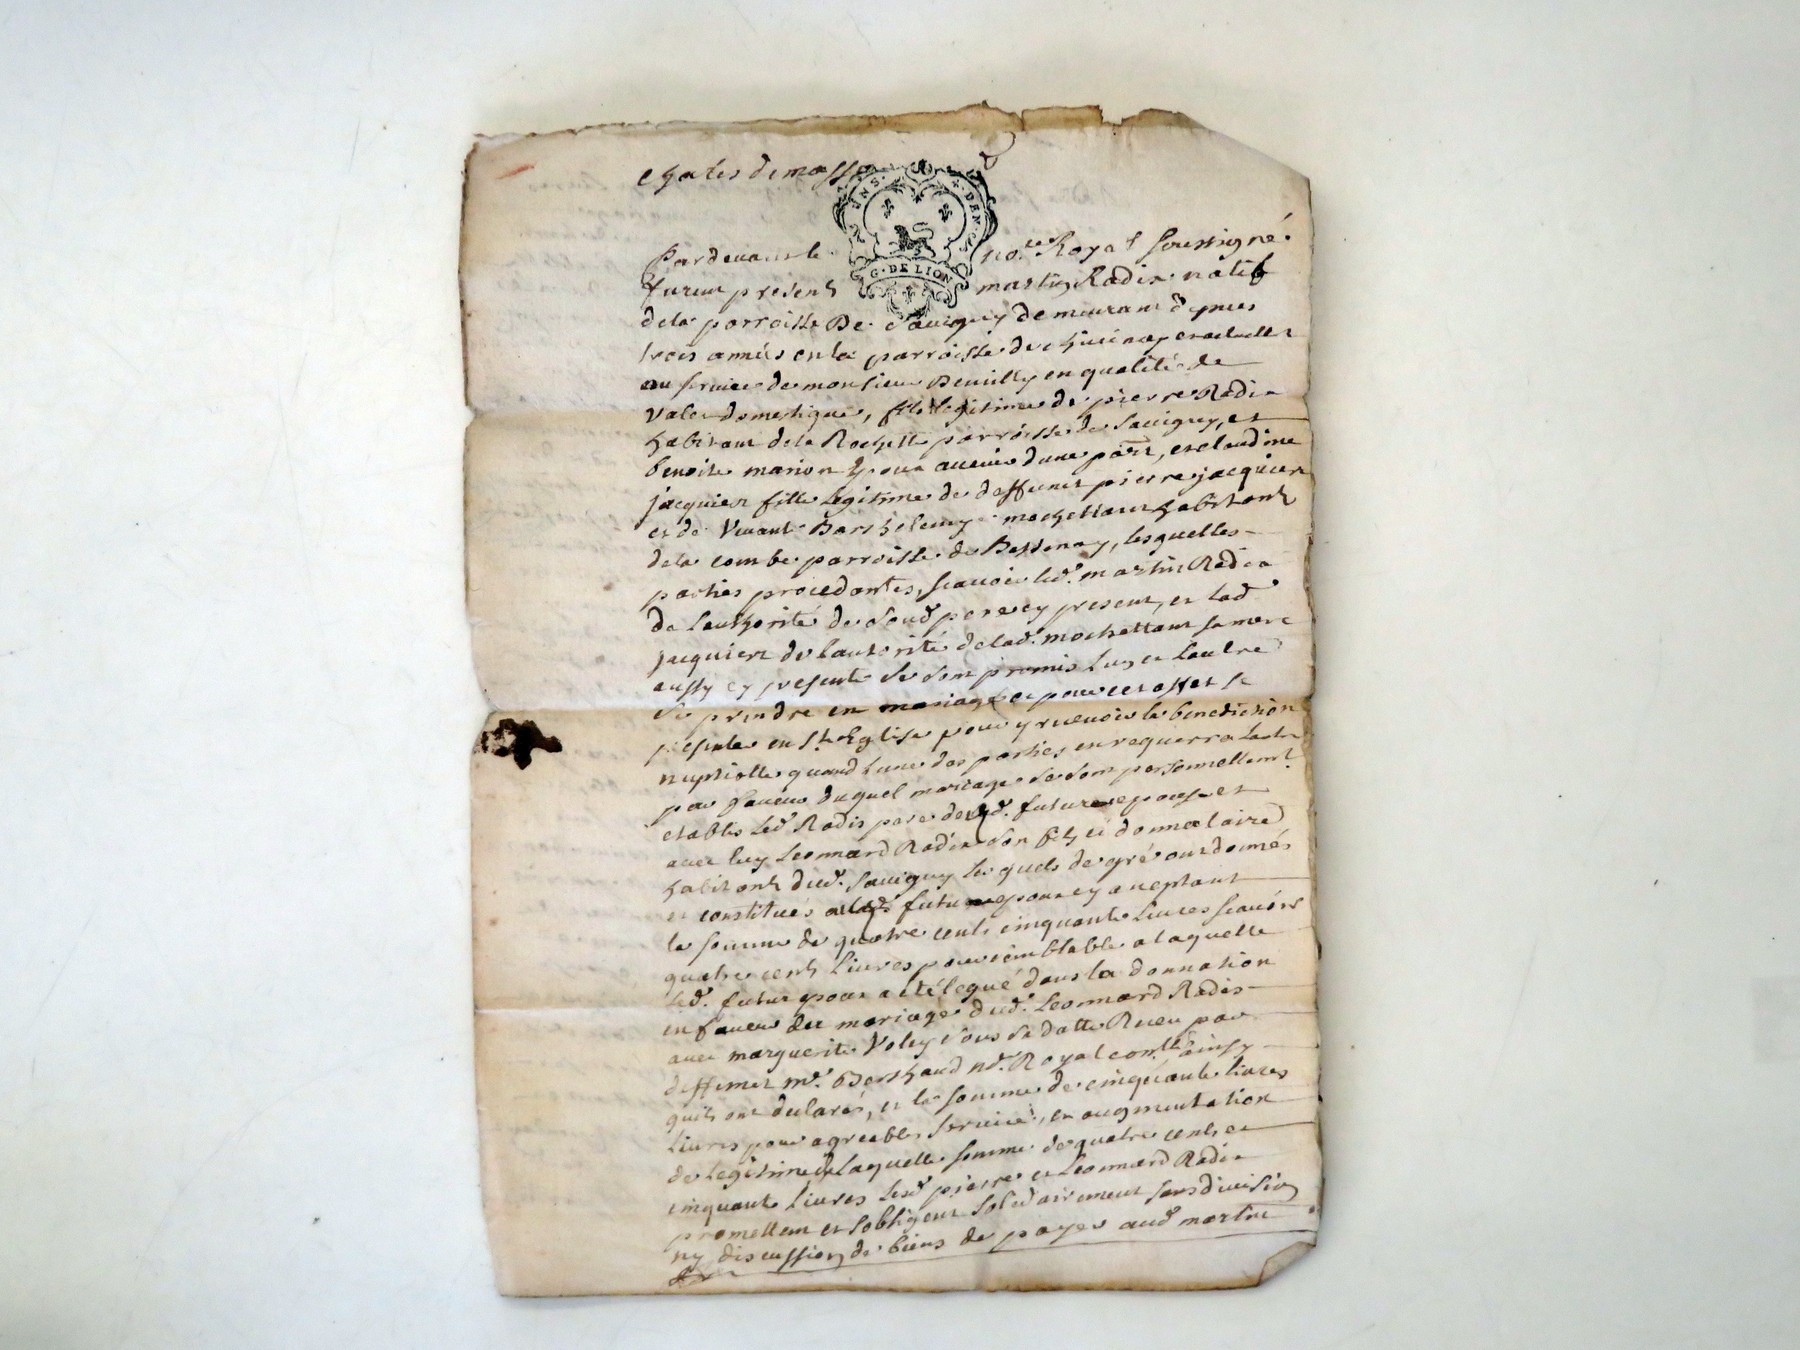 Pardevant le no.re Royal soussigné
furent presents martin Radix natif
dela parroisse De Savigny demeurant depuis
trois années en la parroisse de
au service de monsieur en qualité de
Valet domestique, fils legitime de pierre Radix
habitant dela Rochette parroisse de Savigny, et
benoite marion Epoux avenir dune part, et claudine
jacquier fille Legitime de deffunct pierre jacquier
et de Vivante Barthelemy mochettant habitants
dela combe parroisse de Bessenay, lesquelles
parties procedantes, scavoir led. martin Radix
de lauthorité de sond pere cy present, et lad
jacquier de lautorité delad. mochettant sa mere
aussy cy presente se sont promis lun et lautre
se prendre en mariage et pour cet effet se
presenter en Ste Eglise pour y recevoir la benediction
nuptialle quand lune des parties en requerra lautre
en faveur duquel mariage se sont personnellemt
etablis led Radix pere dud. futur epoux et
avec luy Leonnard Radix son fils et donnataire
habitants dud. Savigny lesquels de gré ont donnés
et constitués aud. futur epoux cy acceptant
la somme de quatre cents cinquante Livres scavoir
quatre cents Livres pour semblable a laquelle
led. futur epoux a eté legué dans la donnation
en faveur du mariage dud. Leonnard Radix
avec marguerite Voley sous sa datte Receu par
deffunct me. Berthaud no.re Royal ainsy
quils ont declarés, et la somme de cinquante livres
Livres pour agreables services, et augmentation
de legitime Laquelle somme de quatre cents et
cinquante livres lesd pierre et Leonnard Radix
promettent et sobligent solidairement sans division
ny discussion de biens de payer aud martin
G. DE LION